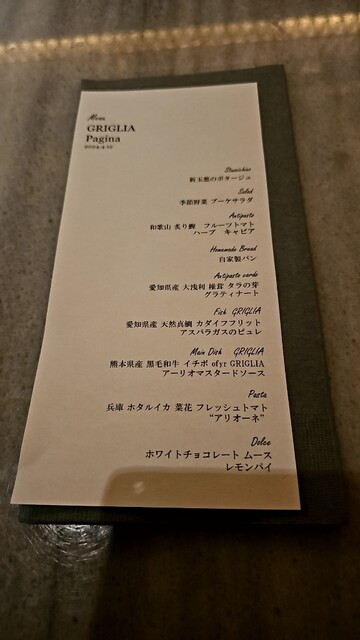 Menu
GRIGLIA
Pagina
2024.4.12
Stuzzichino
新玉葱のポタージュ
Salad
季節野菜 ブーケサラダ
Antipasto
和歌山 炙り鰹 フルーツトマト
ハーブ キャビア
Homemade Bread
自家製パン
Antipasto caldo
愛知県産 大浅利 椎茸 タラの芽
グラティナート
Fish GRIGLIA
愛知県産 天然真鯛 カダイフフリット
アスパラガスのピュレ
Main Dish GRIGLIA
熊本県産 黒毛和牛 イチボ ofyr GRIGLIA
アーリオマスタードソース
Pasta
兵庫 ホタルイカ 菜花 フレッシュトマト
"アリオーネ"
Dolce
ホワイトチョコレート ムース
レモンパイ